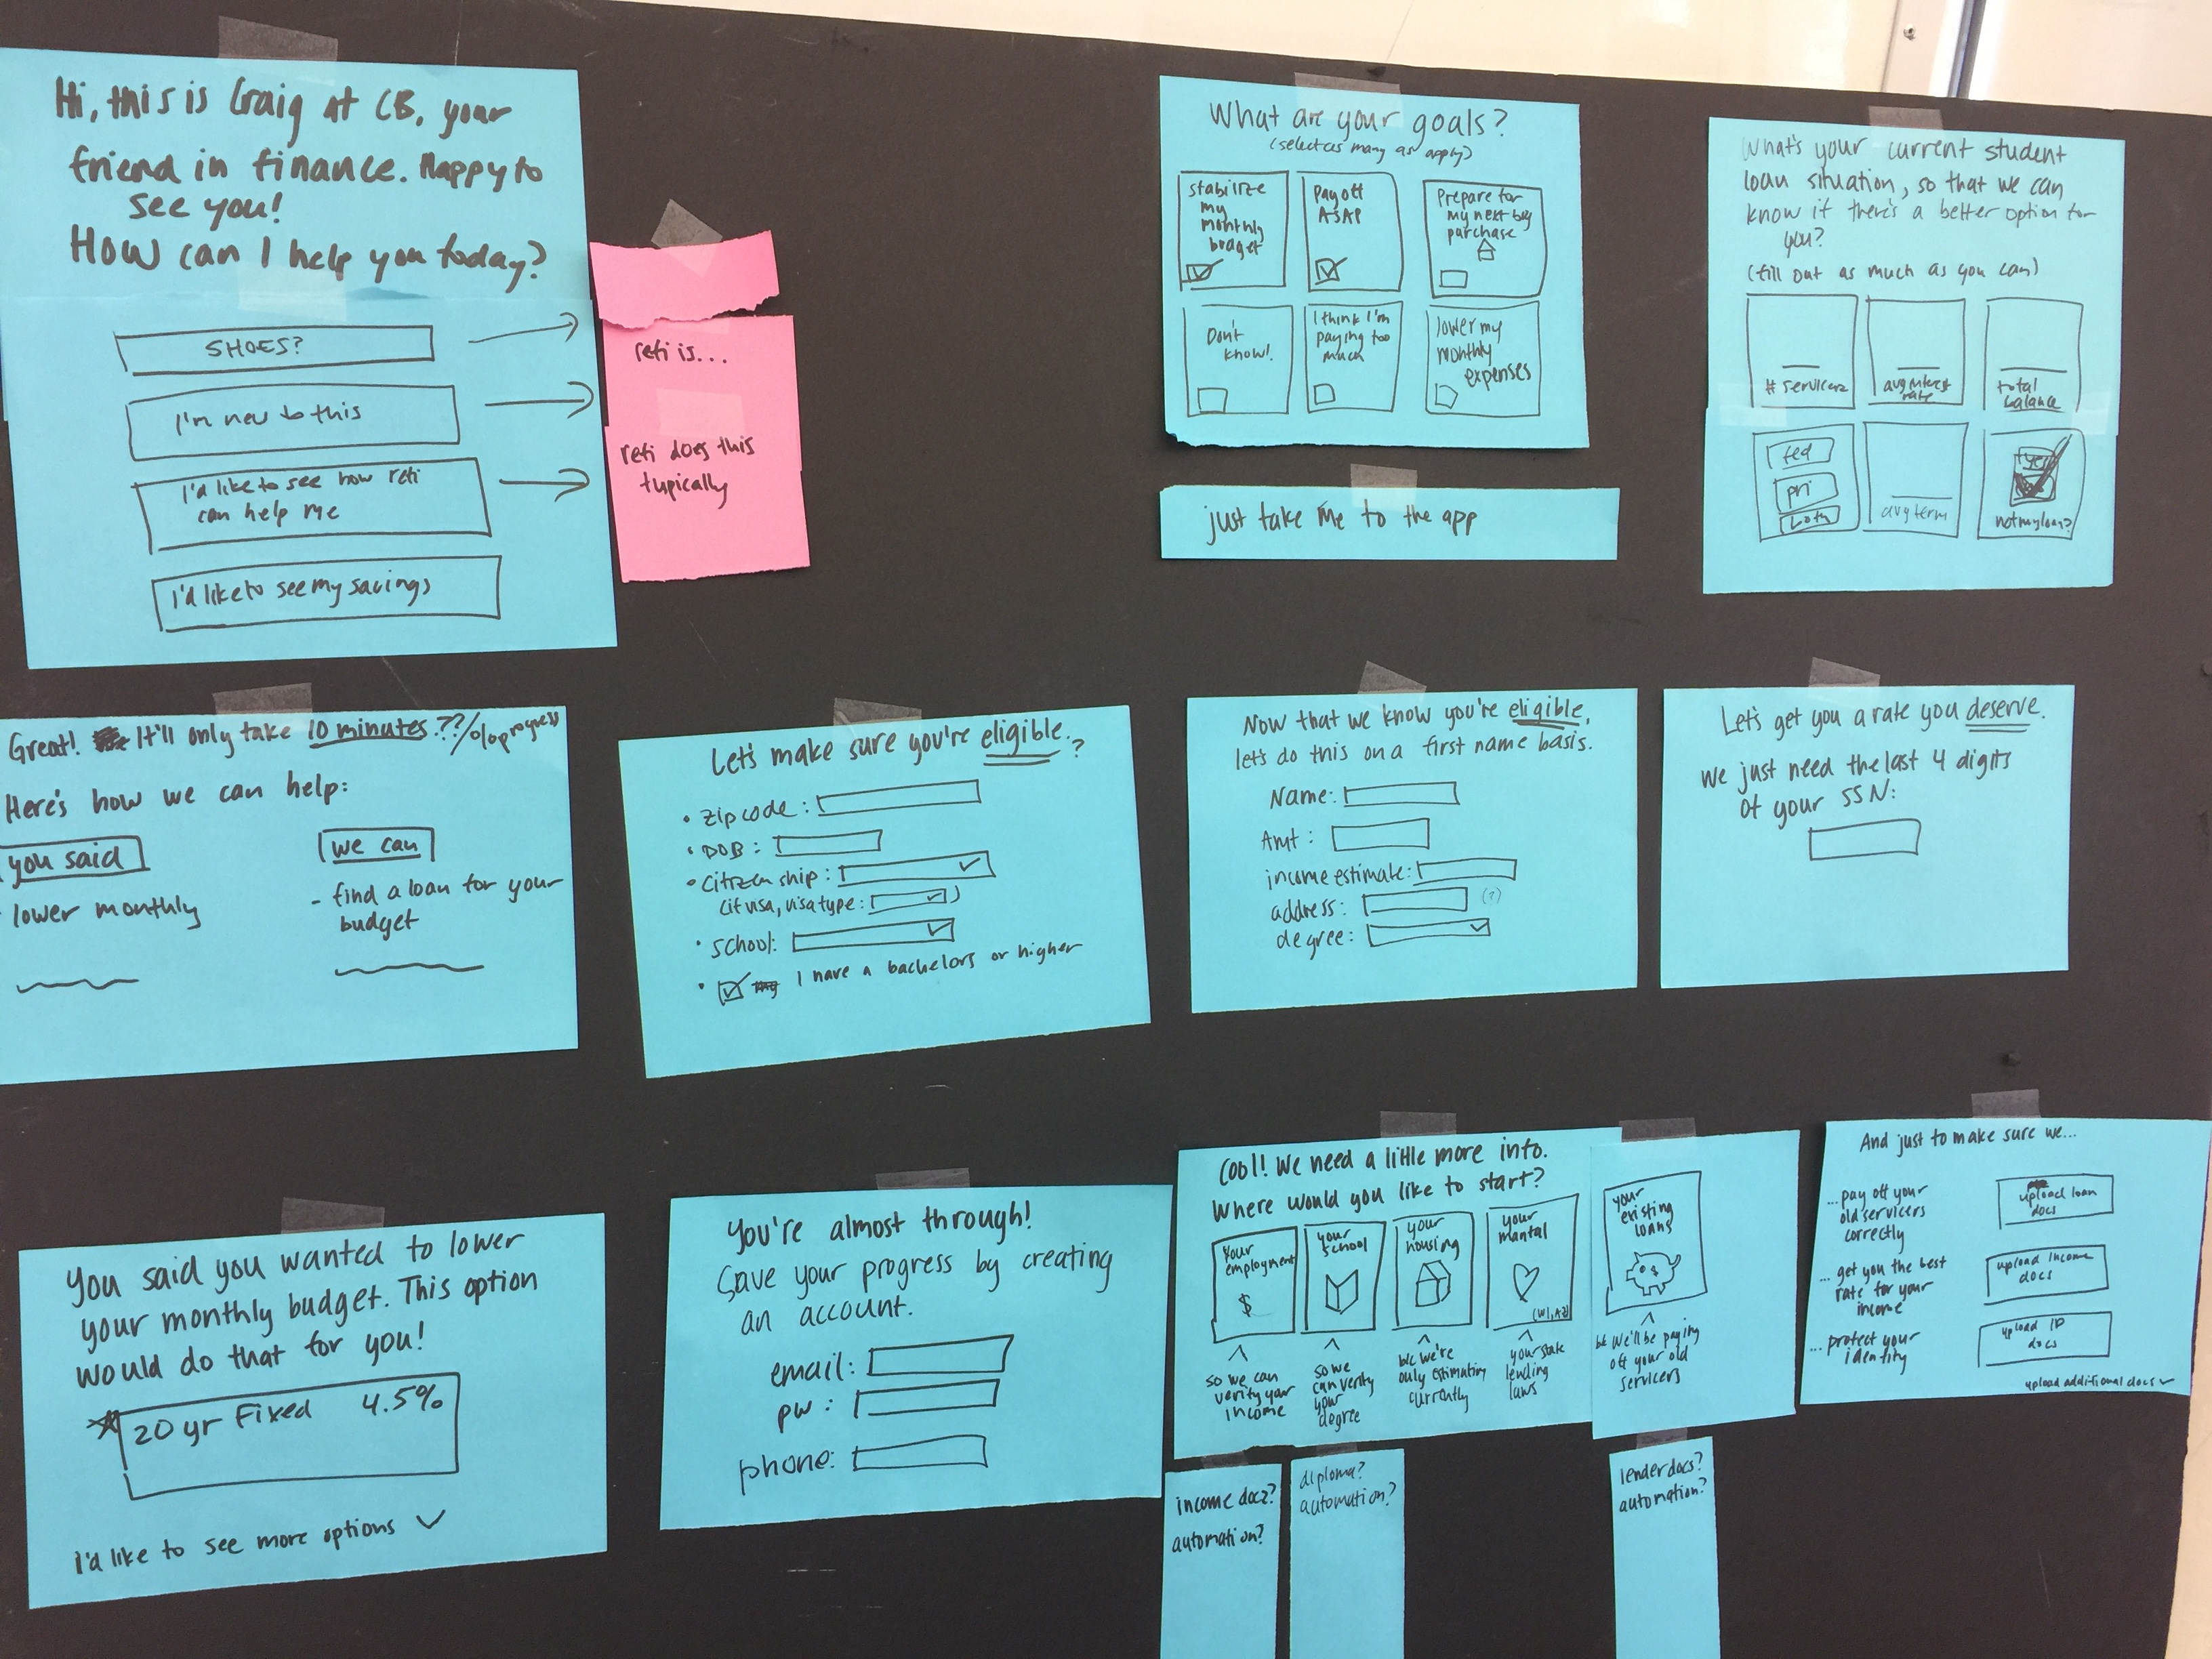 Hi, this is Craig at CB, your
friend in finance. Happy to
see you!
How can I help you today?
SHOES?
I'm new to this
I'd like to see how refi
can help me
I'd like to see my savings
refi is...
refi does this
typically
What are your goals?
(select as many as apply)
stabilize
my
monthly
budget
Pay off
ASAP
Prepare for
my next big
purchase
Don't
know!
I think I'm
paying too
much
lower my
monthly
expenses
just take me to the app
What's your current student
loan situation, so that we can
know if there's a better option for
you?
(fill out as much as you can)
# servicers
avg interest
rate
total
balance
fed
pri
both
avg term
not my loan?
Great! It'll only take 10 minutes??/% progress
Here's how we can help:
you said
we can
lower monthly
- find a loan for your
budget
Let's make sure you're eligible.?
• Zip code:
• DOB:
• Citizenship:
(if visa, visa type: )
• School:
• I have a bachelors or higher
Now that we know you're eligible,
let's do this on a first name basis.
Name:
Amt:
income estimate:
address: (?)
degree:
Let's get you a rate you deserve.
We just need the last 4 digits
of your SSN:
You said you wanted to lower
your monthly budget. This option
would do that for you!
20 yr Fixed 4.5%
I'd like to see more options
You're almost through!
Save your progress by creating
an account.
email:
pw:
phone:
Cool! We need a little more info.
Where would you like to start?
Your
employment
$
your
school
your
housing
your
marital
(WI, AZ)
your
existing
loans
$
so we can
verify your
income
so we
can verify
your
degree
b/c we're
only estimating
currently
your state
lending
laws
b/c we'll be paying
off your old
servicers
And just to make sure we...
...pay off your
old servicers
correctly
upload loan
docs
... get you the best
rate for your
income
upload income
docs
... protect your
identity
upload ID
docs
upload additional docs
income docs?
automation?
diploma?
automation?
lender docs?
automation?